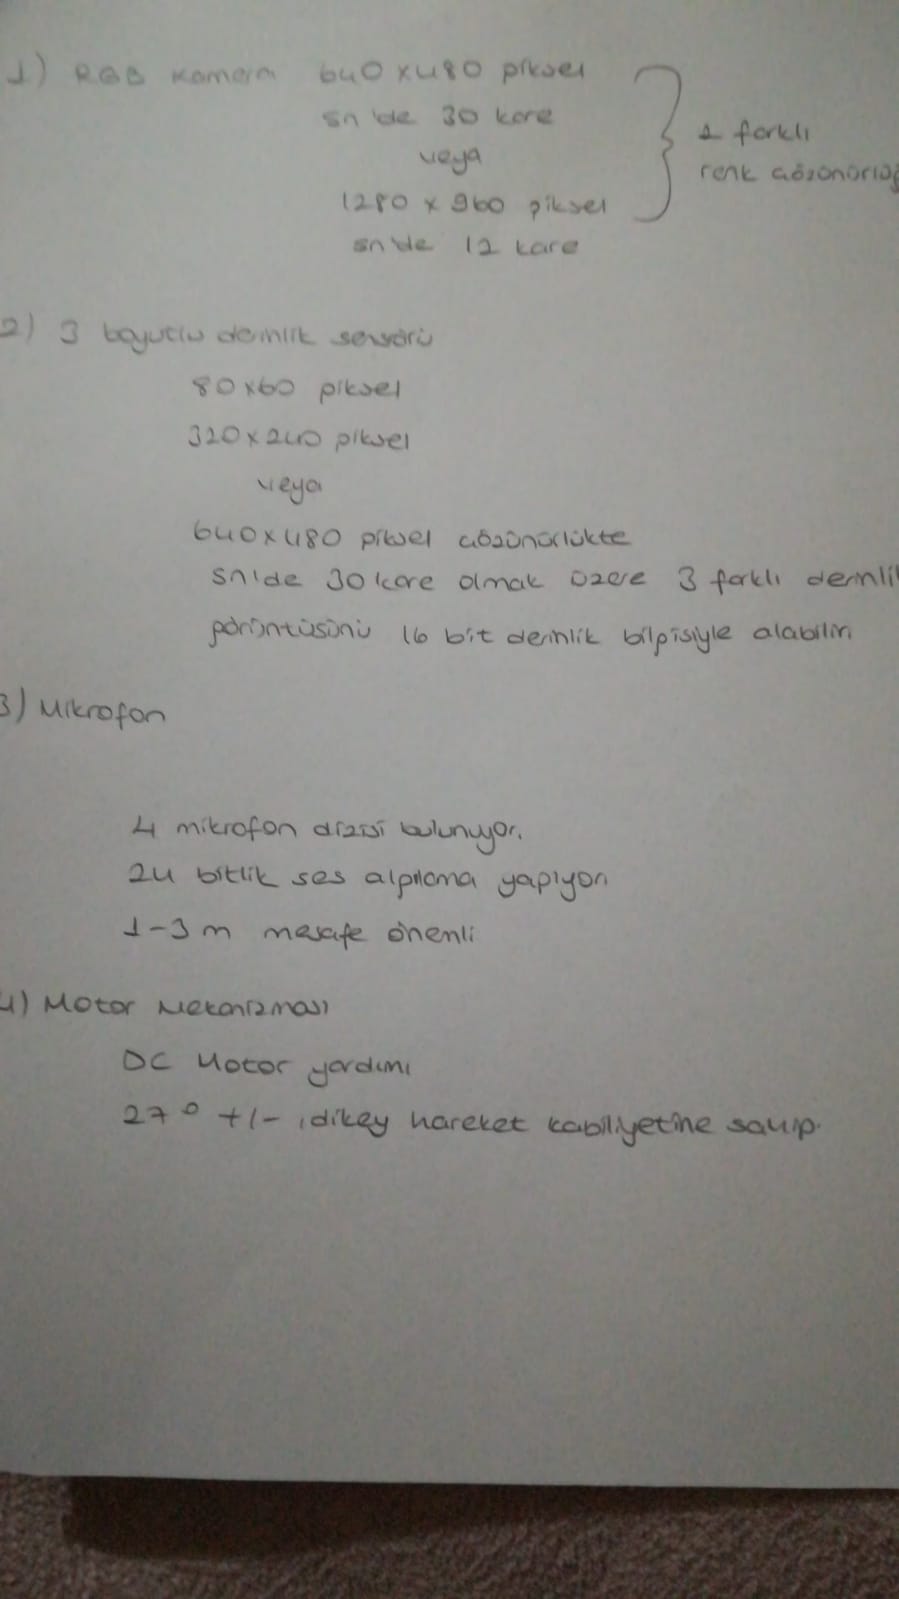 1) RGB Kamera 640x480 piksel
sn'de 30 kare
veya
1280 x 960 piksel
sn'de 12 kare
2 farklı
renk çözünürlüğ
2) 3 boyutlu derinlik sensörü
80x60 piksel
320x240 piksel
veya
640x480 piksel çözünürlükte
sn'de 30 kare olmak üzere 3 farklı derinli
görüntüsünü 16 bit derinlik bilgisiyle alabilir.
3) Mikrofon
4 mikrofon dizisi bulunuyor.
24 bitlik ses algılama yapıyor.
1-3 m mesafe önemli
4) Motor Mekanizması
DC Motor yardımı
27° +/- dikey hareket kabiliyetine sahip.